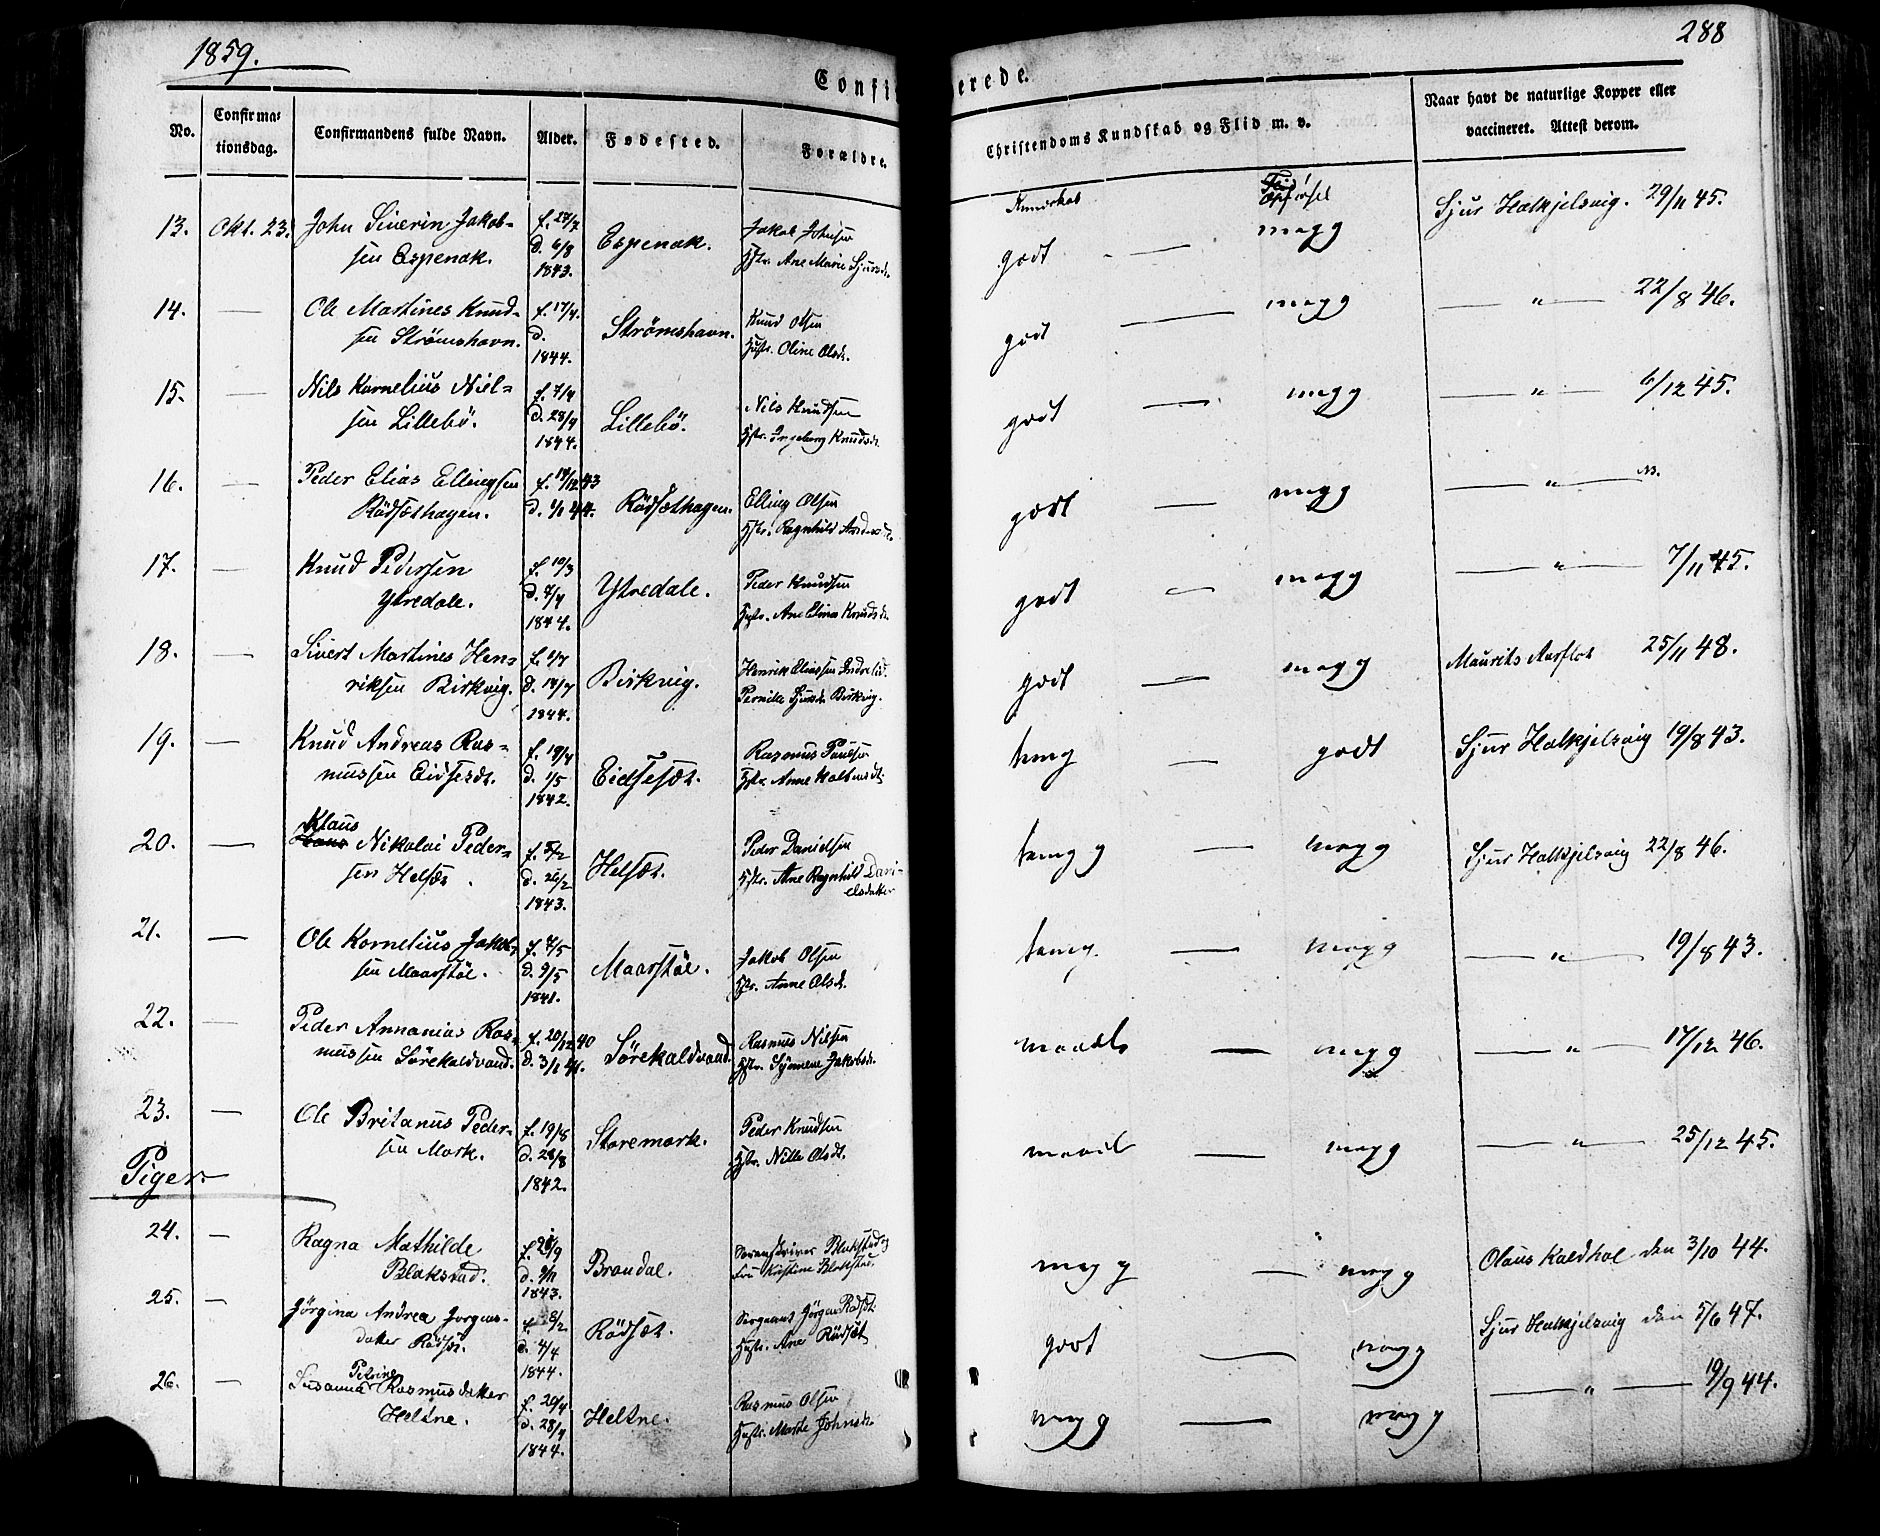 1859.
288
Confirmerede.
No.
Confirma-
tionsdag.
Confirmandens fulde Navn.
Alder.
Fødested.
Forældre.
Christendoms Kundskab og Flid m. v.
Naar havt de naturlige Kopper eller
vaccineret. Attest derom.
Kundskab
Opførsel
13. Okt. 23. John Siverin Jakob-
sen Espenak.
f. 27/7
d. 6/8
1843.
Espenak.
Jakob Johnsen
Hstr. Ane Marie Sjursd.
godt — megg
Sjur Halkjelsvig. 29/11 45.
14. — Ole Martines Knud-
sen Strømshavn.
f. 17/4.
d.
1844.
Strømshavn.
Knud Olsen
Hustr. Oline Olsd.
godt — megg
— " — 22/8 46.
15. — Nils Kornelius Niel-
sen Lillebö.
f. 7/4
d. 28/4
1844.
Lillebö.
Nils Knudsen
Hstr. Ingeborg Knudsd.
godt — megg
— " — 6/12 45.
16. — Peder Elias Ellingsen
Rödsæthagen.
f. 14/12 43
d. 1/1 44.
Rödsæthagen.
Elling Olsen
Hstr. Ragnhild
godt — megg
— " —
17. — Knud Pedersen
Ytredale.
f. 10/3
d. 8/4
1844.
Ytredale.
Peder Knudsen
Hustr. Ane Elina Knudsd.
godt — megg
— " — 7/11 45.
18. — Sivert Martines Hen-
riksen Birkvig.
f. 1/7
d. 14/7
1844.
Birkvig.
Henrik Eliassen
Pernille Sjursd. Birkvig.
godt — megg
Maurits Aarflot 25/11 48.
19. — Knud Andreas Ras-
mussen Eidsesæt.
f. 18/4
d. 1/5
1842.
Eidsesæt.
Rasmus Paulsen
Hstr. Anne
temg godt
Sjur Halkjelsvig 19/8 43.
20. — Klaus
Nikolai Peder-
sen Helsæt.
f. 5/2
d. 26/2
1843.
Helsæt.
Peder Danielsen
Hstr. Ane Ragnhild Dani-
elsdatter
temg g — megg
Sjur Halkjelsvig 22/8 46.
21. — Ole Kornelius Jakob-
sen Maarstöl.
f. 8/5
d. 9/5
1841.
Maarstöl.
Jakob Olsen
Hstr. Anne Olsd.
temg. — megg
— " — 19/8 43.
22. — Peder Annanias Ras-
mussen Sörekaldvand.
f. 20/12 40
d. 3/1 41.
Sörekaldvand.
Rasmus Nilsen
Hstr. Jakobsd.
maadl. — megg
— " — 17/12 46.
23. — Ole Britanus Peder-
sen Mork.
f. 19/8
d. 28/8
1842.
Storemork.
Peder Knudsen
Hstr. Nille Olsd.
maadl — megg
— " — 25/12 45.
Piger
24. — Ragna Mathilde
Blakstad.
f. 28/9
d. 9/11
1843.
Brandal.
Sorenskriver Blakstad og
Fru Kristine Blakstad.
meg g — megg
Olaus Kaldhol den 3/10 44.
25. — Jörgina Andrea Jorgens-
datter Rödsæt.
f. 8/2
d. 4/4
1844.
Rödsæt.
Sergeant Jörgen Rödsæt.
Hustr. Ane Rödsæt
godt — megg
Sjur Halkjelsvig den 5/6 47.
26. — Petrine
Susanna Rasmusdatter
Heltne.
f. 20/4
d. 28/4
1844.
Heltne.
Rasmus Olsen
Hustr. Marte Johnsd.
megg — megg
— " — 19/9 44.